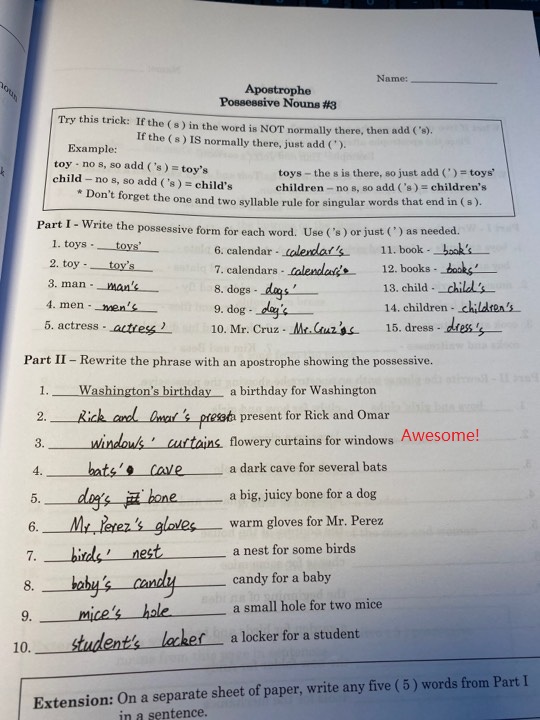 noun
Name:
Apostrophe
Possessive Nouns #3
Try this trick: If the ( s ) in the word is NOT normally there, then add ('s).
If the ( s ) IS normally there, just add (').
Example:
toy - no s, so add ('s) = toy's
toys – the s is there, so just add (') = toys'
child – no s, so add ('s) = child's
children – no s, so add ('s) = children's
* Don't forget the one and two syllable rule for singular words that end in ( s ).
Part I - Write the possessive form for each word. Use ('s) or just (') as needed.
1. toys - toys' 6. calendar - calendar's 11. book - book's
2. toy - toy's 7. calendars - calendars' 12. books - books'
3. man - man's 8. dogs - dogs' 13. child - child's
4. men - men's 9. dog - dog's 14. children - children's
5. actress - actress' 10. Mr. Cruz - Mr. Cruz's 15. dress - dress's
Part II – Rewrite the phrase with an apostrophe showing the possessive.
1. Washington's birthday a birthday for Washington
2. Rick and Omar's present a present for Rick and Omar
3. windows' curtains flowery curtains for windows Awesome!
4. bats' cave a dark cave for several bats
5. dog's bone a big, juicy bone for a dog
6. Mr. Perez's gloves warm gloves for Mr. Perez
7. birds' nest a nest for some birds
8. baby's candy candy for a baby
9. mice's hole a small hole for two mice
10. student's locker a locker for a student
Extension: On a separate sheet of paper, write any five ( 5 ) words from Part I
in a sentence.